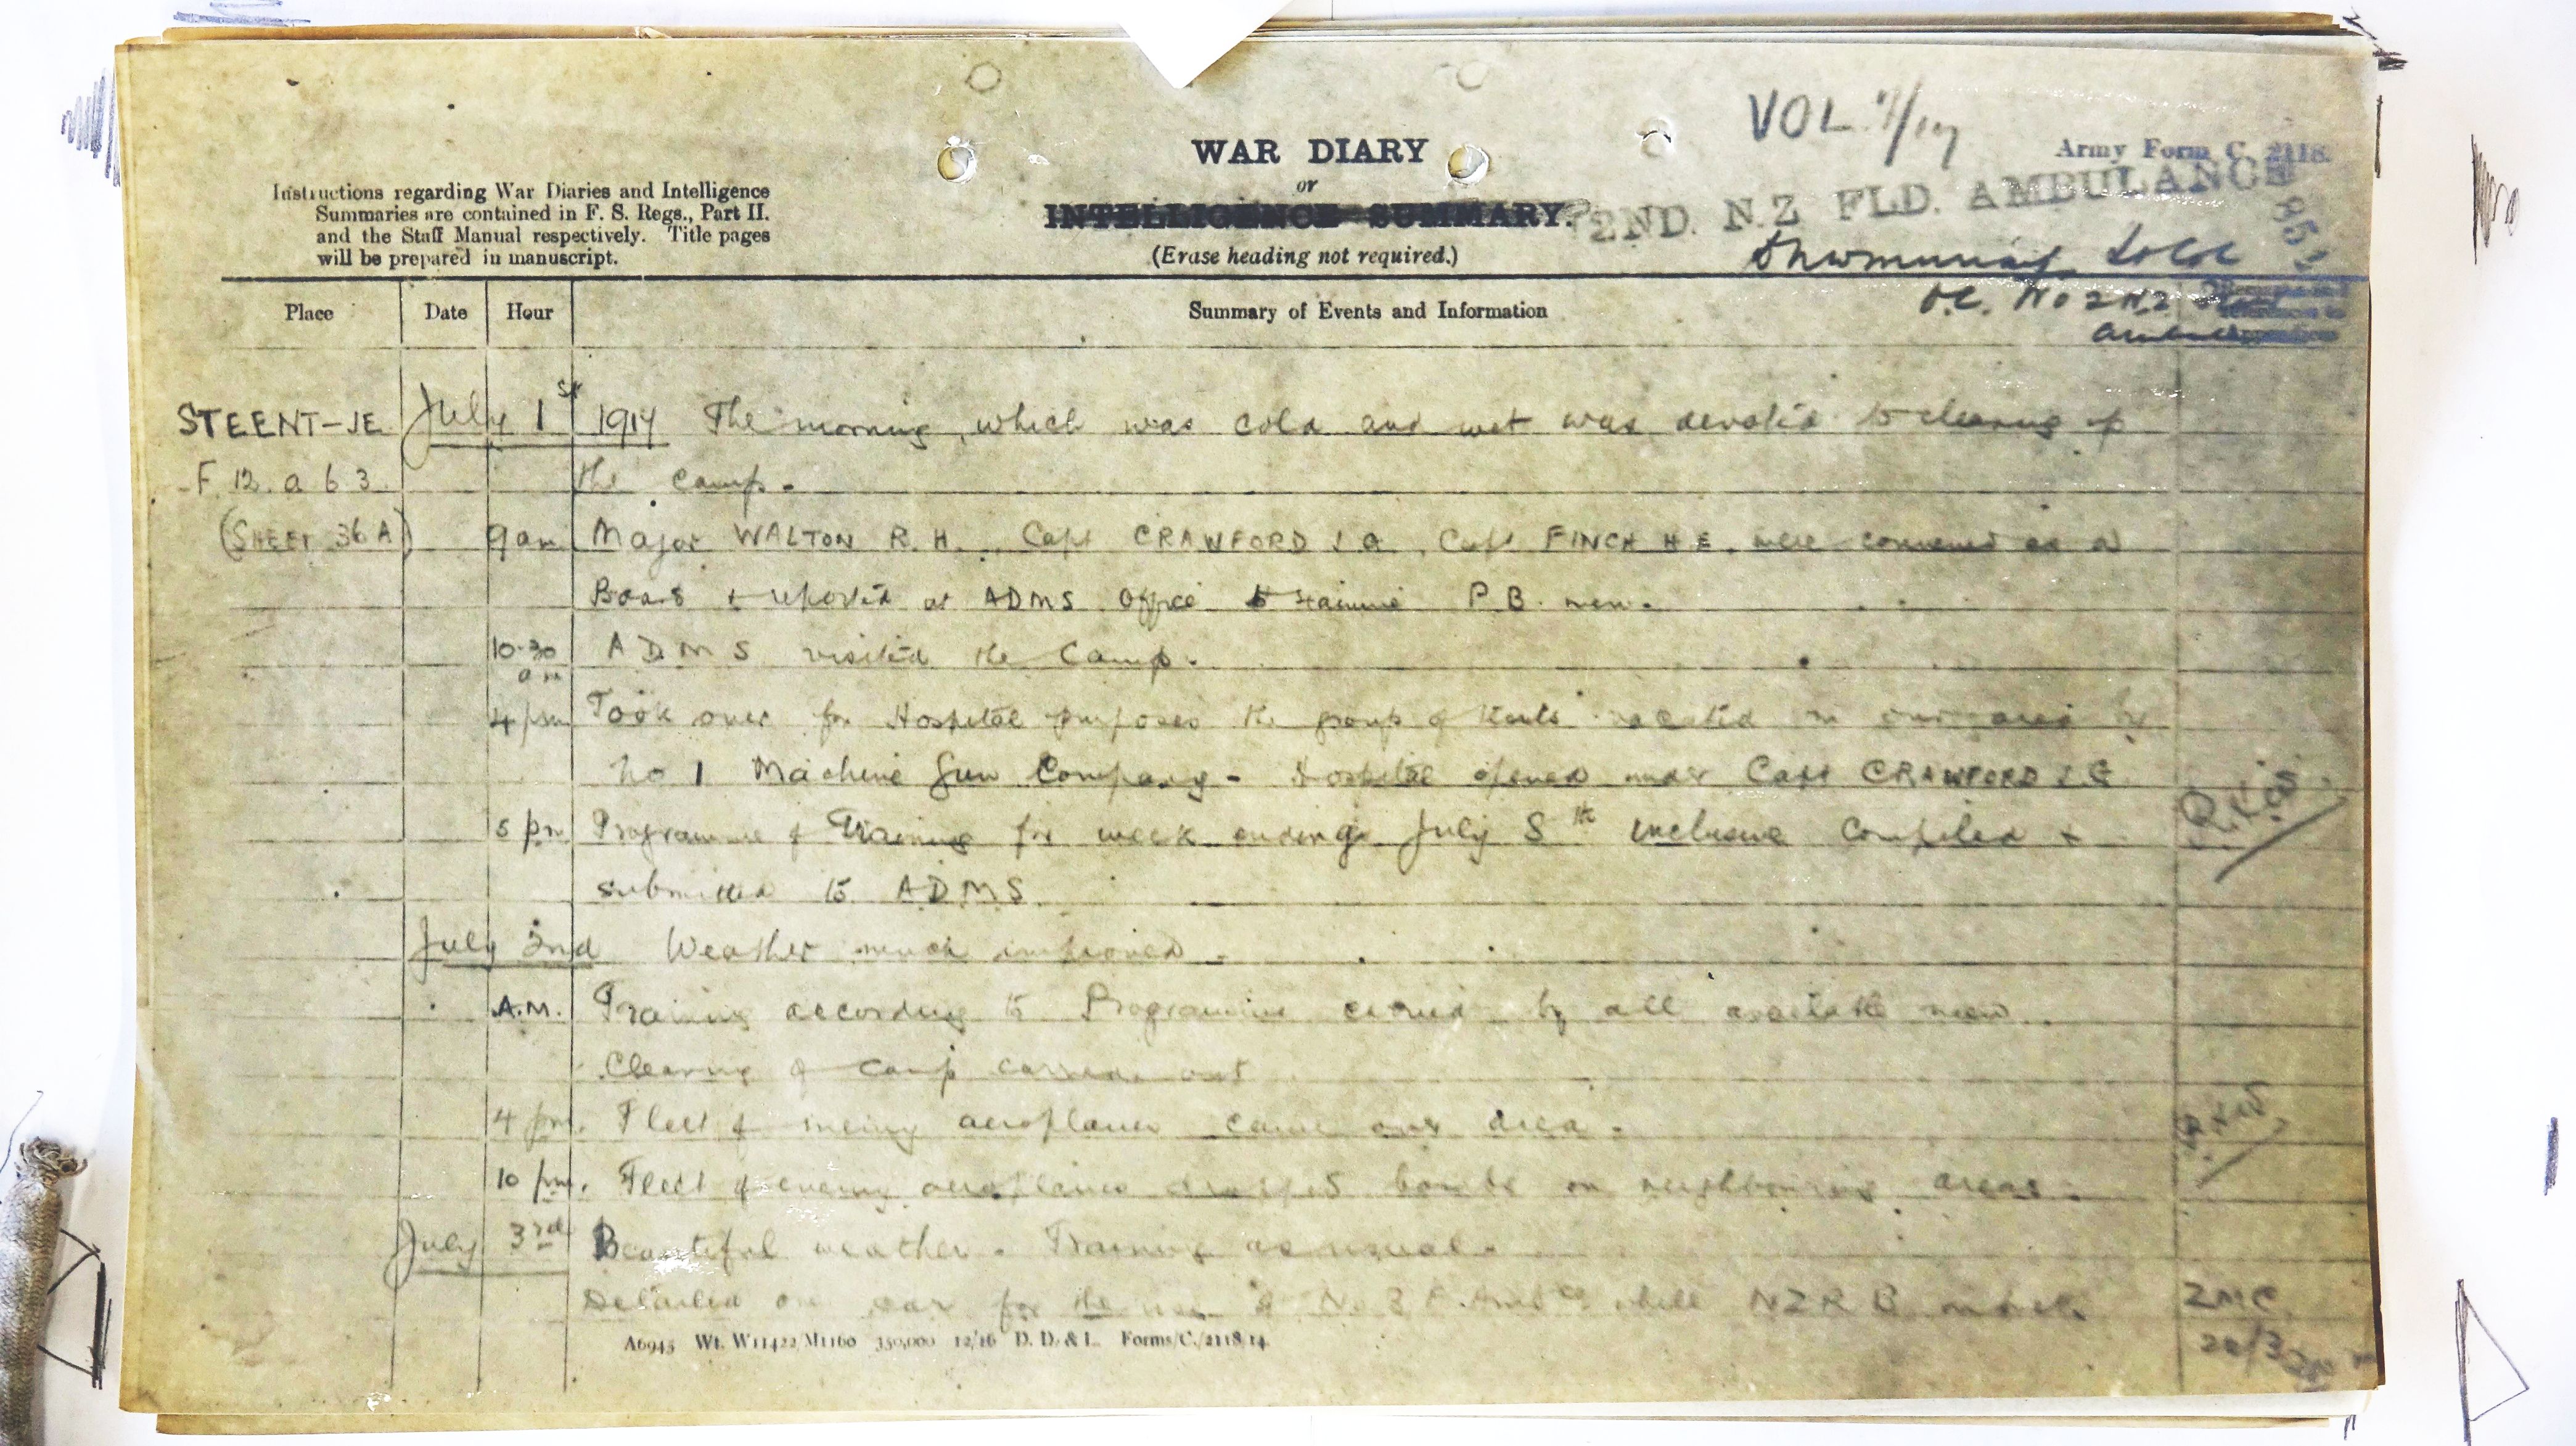 VOL. 7/17
Army Form C. 2118.
WAR DIARY
or
INTELLIGENCE SUMMARY.
(Erase heading not required.)
2ND. N.Z. FLD. AMBULANCE
Instructions regarding War Diaries and Intelligence
Summaries are contained in F. S. Regs., Part II.
and the Staff Manual respectively. Title pages
will be prepared in manuscript.
O.C. No 2 N.Z.
Place Date Hour Summary of Events and Information
STEENT-JE July 1st 1917 The morning, which was cold and wet was devoted to clearing up
F. 12. a 6 3. the camp.
(SHEET 36A) 9 am Major WALTON R. H., Capt CRAWFORD J G, Capt FINCH H E. were convened as a
Board & reported at ADMS Office to examine P.B. men.
10.30 am A D M S visited the Camp.
4 pm Took over for Hospital purposes the group of tents vacated in our area by
No 1 Machine Gun Company - Hospital opened under Capt CRAWFORD J G
5 pm Programme of Training for week ending July 8th inclusive compiled &
submitted to ADMS.
July 2nd Weather much improved.
A.M. Training according to Programme carried by all available men.
Clearing of camp carried out
4 pm. Fleet of enemy aeroplanes came over area.
10 pm. Fleet of enemy aeroplanes dropped bombs on neighbouring areas.
July 3rd Beautiful weather. Training as usual.
Detailed one car for the use of No 3 F. Ambce while NZRB
A6945 Wt. W11422/M1160 350,000 12/16 D. D. & L. Forms/C./2118/14.